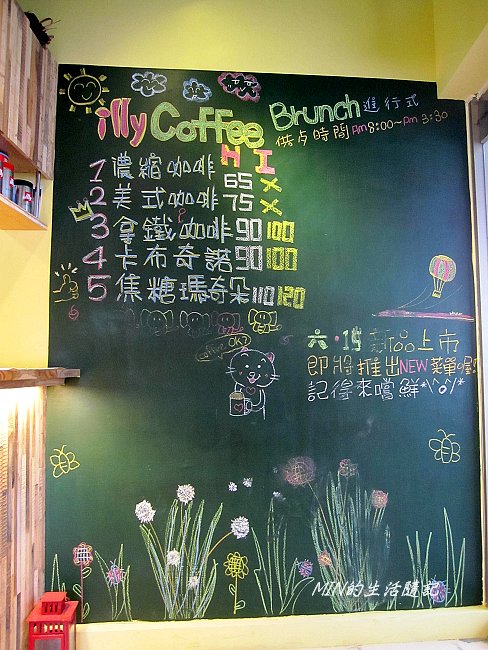 illy Coffee
Brunch 進行式
供点時間 Am 8:00~Pm 3:30
H I
1 濃縮咖啡 65 ×
2 美式咖啡 75 ×
3 拿鐵咖啡 90 100
4 卡布奇諾 90 100
5 焦糖瑪奇朵 110 120
coffee OK?
六·日 新品上市
即將推出NEW菜單喔!
記得來嚐鮮*\^o^/*
MIN的生活隨記